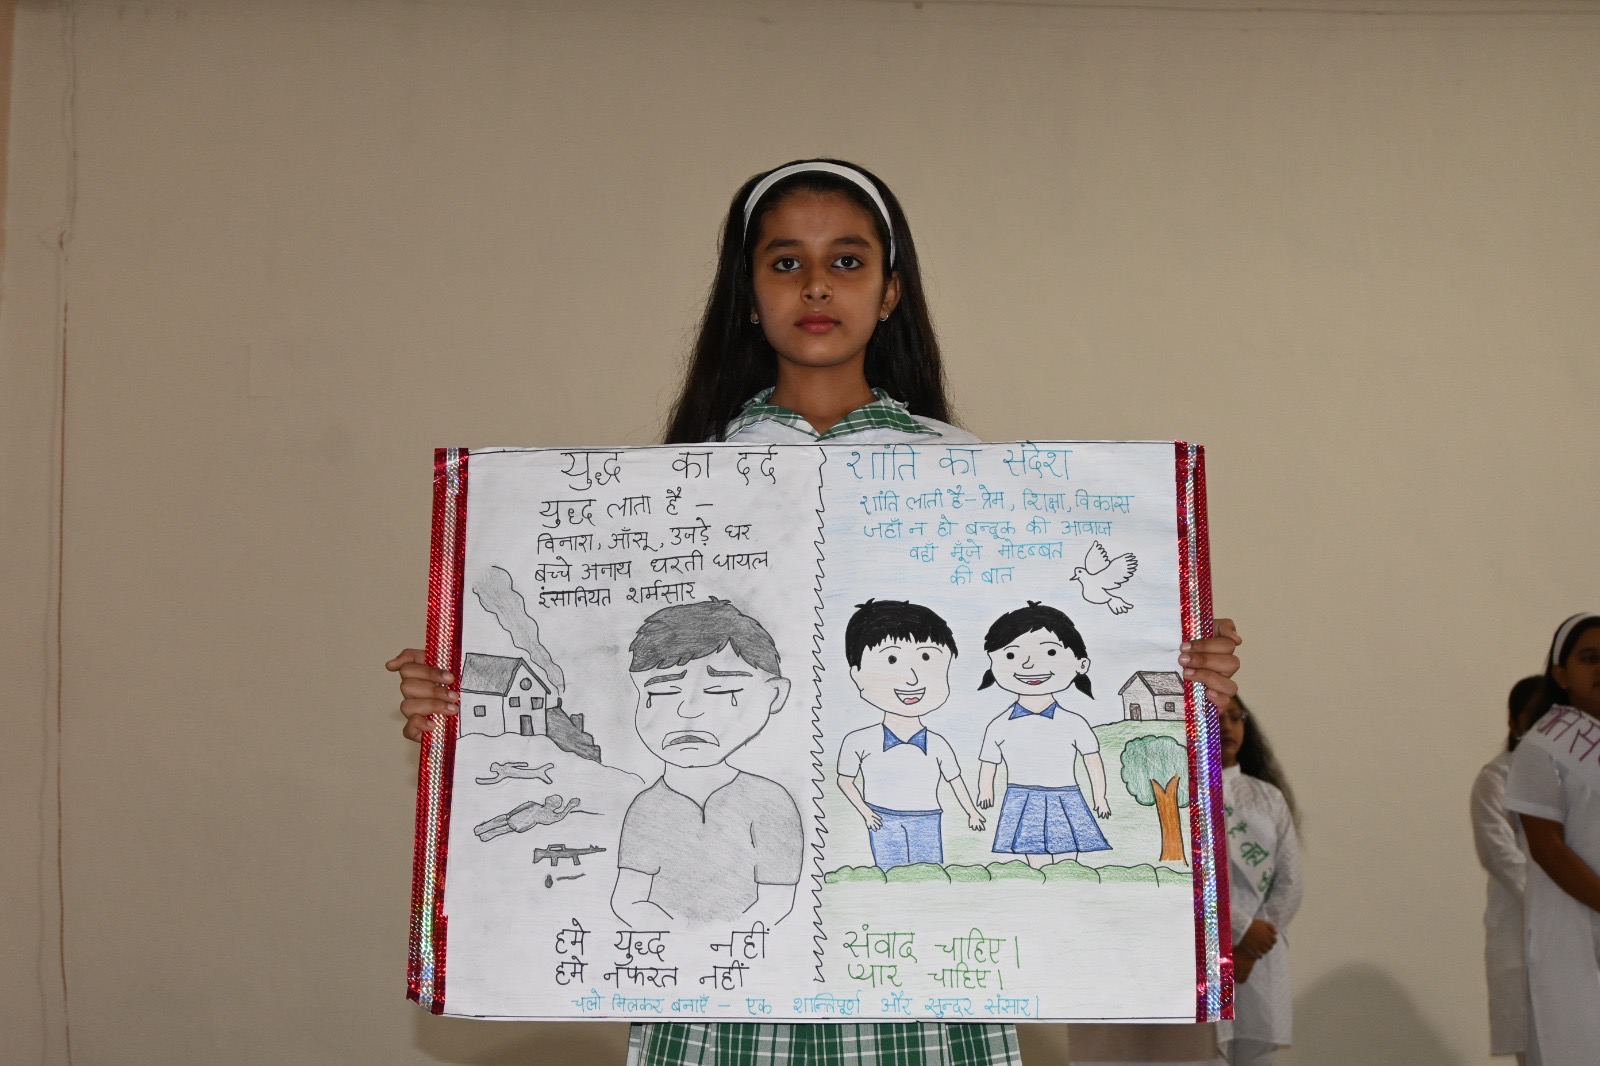 युद्ध का दर्द
युद्ध लाता है -
विनाश, आँसू, उजड़े घर
बच्चे अनाथ धरती घायल
इंसानियत शर्मसार
हमे युद्ध नहीं
हमे नॅफरत नहीं
शांति का संदेश
शांति लाती है - प्रेम, शिक्षा, विकास
जहाँ न हो बन्दूक की आवाज
वहाँ गूँजे मोहब्बत
की बात
संवाद चाहिए।
प्यार चाहिए।
चलो मिलकर बनाएँ - एक शान्तिपूर्ण और सुन्दर संसार।